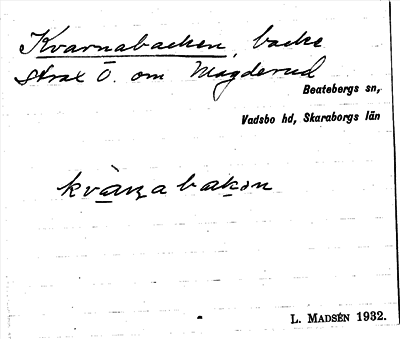 Kvarnabacken, backe
strax Ö. om Magderud
Beatebergs sn,
Vadsbo hd, Skaraborgs län
kvàṇabakən
L. MADSÉN 1932.